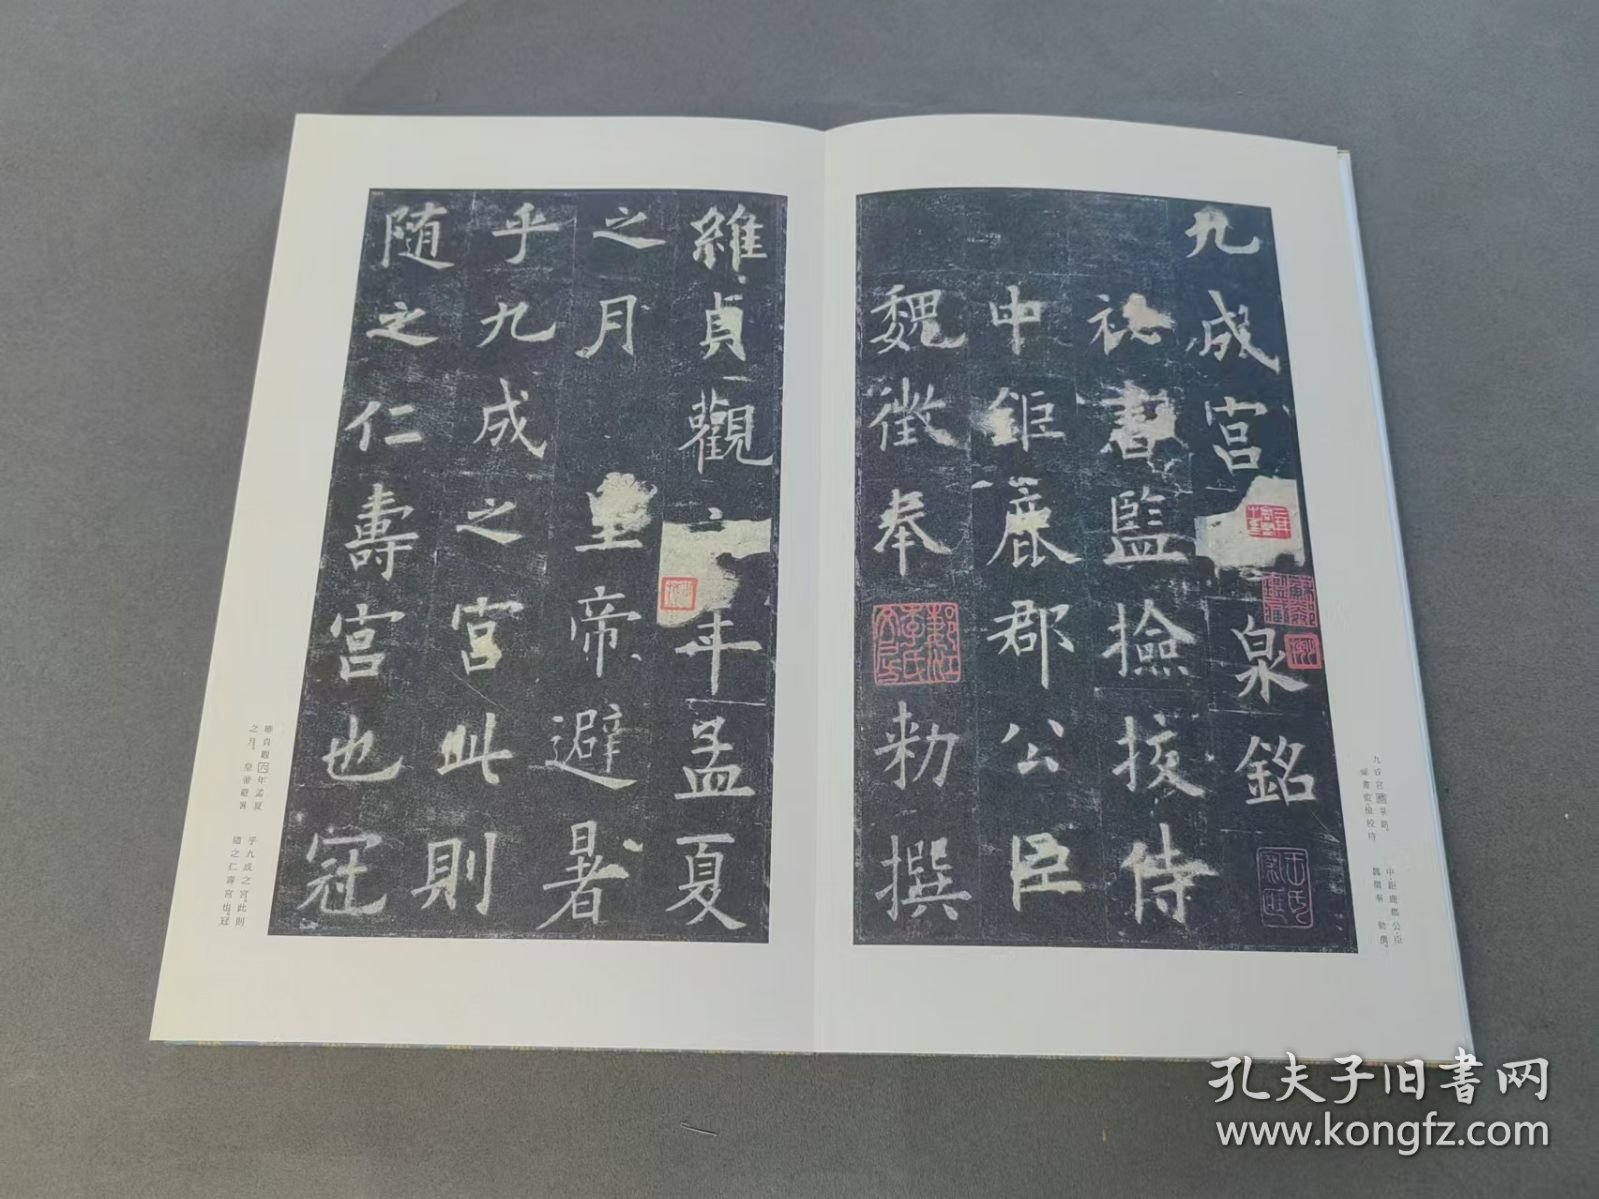 九成宮泉銘
秘書監撿挍侍
中鉅鹿郡公臣
魏徵奉勑撰
維貞觀六年孟夏
之月皇帝避暑
乎九成之宮此則
隨之仁壽宮也冠
九成宮醴泉銘。
秘書監檢校侍
中鉅鹿郡公臣
魏徵奉勅撰。
維貞觀六年孟夏
之月。皇帝避暑
乎九成之宮。此則
隨之仁壽宮也。冠
孔夫子旧书网
www.kongfz.com